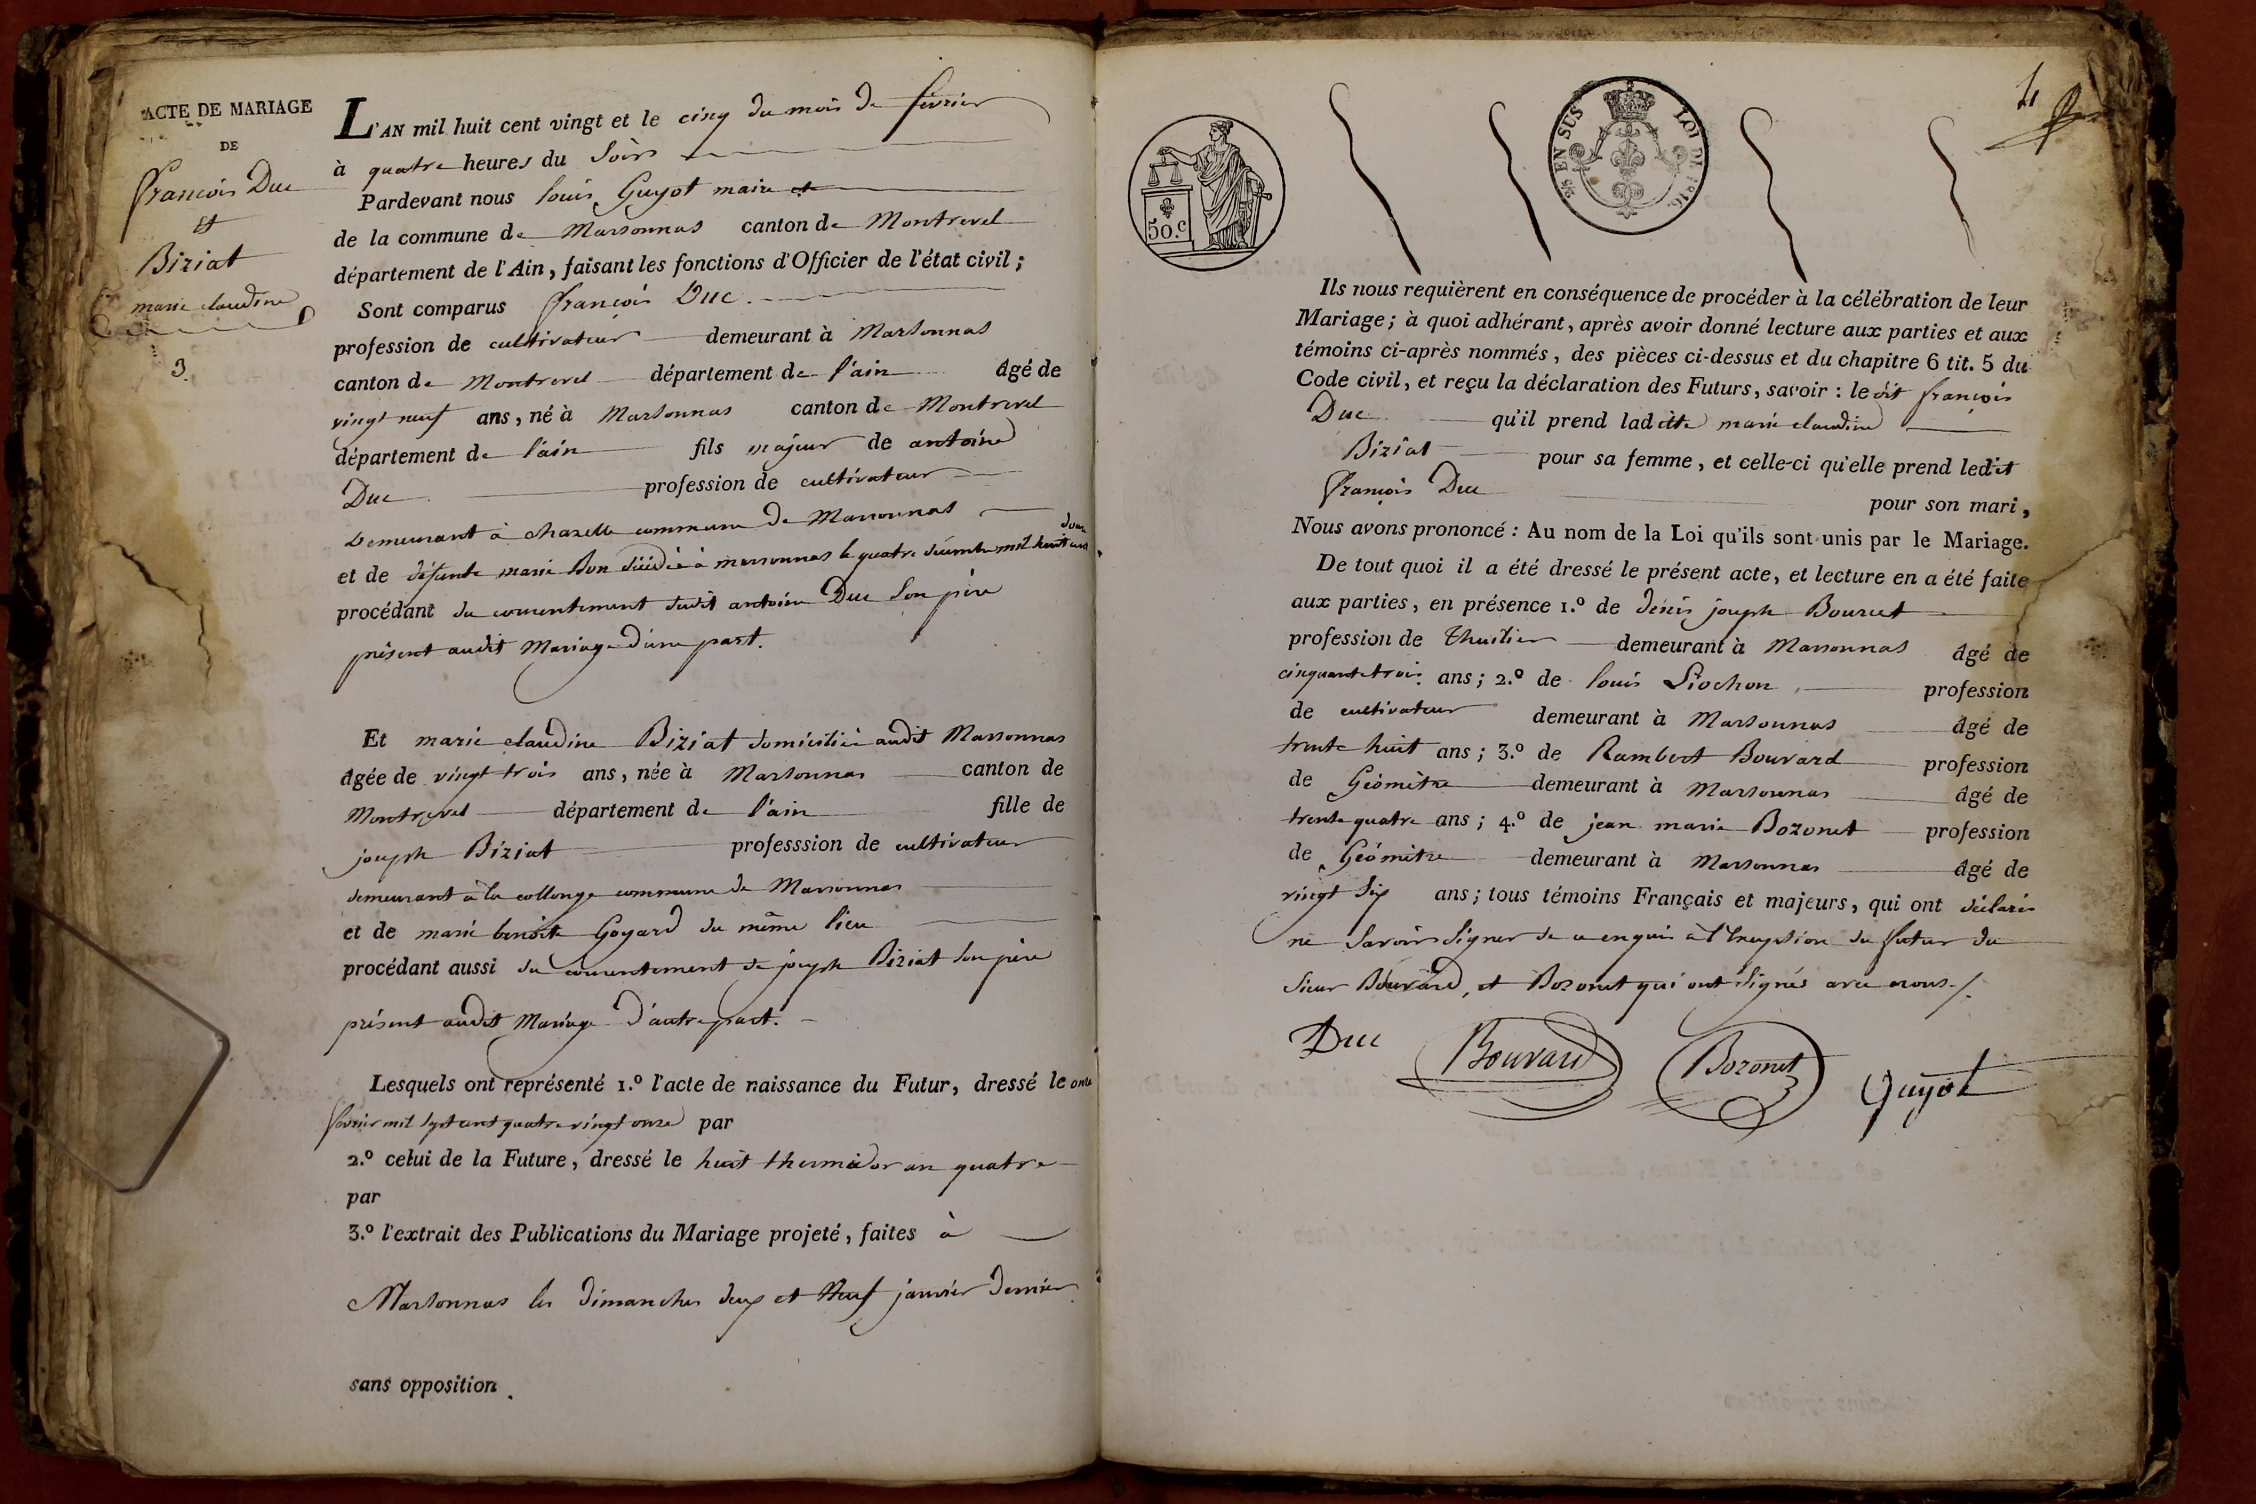 ACTE DE MARIAGE
DE
françois Duc
et
Biziat
marie claudine
3.
L'AN mil huit cent vingt et le cinq du mois de février
à quatre heures du soir
Pardevant nous louis Guyot maire
de la commune de Marsonnas canton de Montrevel
département de l'Ain, faisant les fonctions d'Officier de l'état civil ;
Sont comparus françois Duc
profession de cultivateur demeurant à Marsonnas
canton de Montrevel département de l'ain âgé de
vingt neuf ans, né à Marsonnas canton de Montrevel
département de l'ain fils majeur de antoine
Duc profession de cultivateur
demeurant à chazelle commune de Marsonnas
et de défunte marie Bon décédée à marsonnas le quatre décembre mil huit cent
douze
procédant du consentement dudit antoine Duc son père
présent audit Mariage d'une part.
Et marie claudine Biziat domiciliée audit Marsonnas
âgée de vingt trois ans, née à Marsonnas canton de
Montrevel département de l'ain fille de
joseph Biziat professsion de cultivateur
demeurant à la collonge commune de Marsonnas
et de marie benoite Goyard du même lieu
procédant aussi du consentement de joseph Biziat son père
présent audit Mariage d'autre part.
Lesquels ont représenté 1.º l'acte de naissance du Futur, dressé le onze
février mil sept cent quatre vingt onze par
2.º celui de la Future, dressé le huit thermidor an quatre
par
3.º l'extrait des Publications du Mariage projeté, faites à
Marsonnas les dimanches deux et Neuf janvier dernier
sans opposition.
4
50.c
2/5 EN SUS LOI DE 1816.
Ils nous requièrent en conséquence de procéder à la célébration de leur
Mariage ; à quoi adhérant, après avoir donné lecture aux parties et aux
témoins ci-après nommés, des pièces ci-dessus et du chapitre 6 tit. 5 du
Code civil, et reçu la déclaration des Futurs, savoir : le dit françois
Duc qu'il prend laditte marie claudine
Biziat pour sa femme, et celle-ci qu'elle prend ledit
françois Duc pour son mari,
Nous avons prononcé : Au nom de la Loi qu'ils sont unis par le Mariage.
De tout quoi il a été dressé le présent acte, et lecture en a été faite
aux parties, en présence 1.º de denis joseph Bourcet
profession de Thuilier demeurant à Marsonnas âgé de
cinquante trois ans ; 2.º de louis Siochon profession
de cultivateur demeurant à Marsonnas âgé de
trente huit ans ; 3.º de Rambert Bouvard profession
de Géomètre demeurant à Marsonnas âgé de
trente quatre ans ; 4.º de jean marie Bozonet profession
de Géomètre demeurant à Marsonnas âgé de
vingt six ans ; tous témoins Français et majeurs, qui ont déclarés
ne savoir signer de ce enquis à l'exception du futur du
sieur Bouvard, et Bozonet qui ont signés avec nous./.
Duc Bouvard Bozonet Guyot